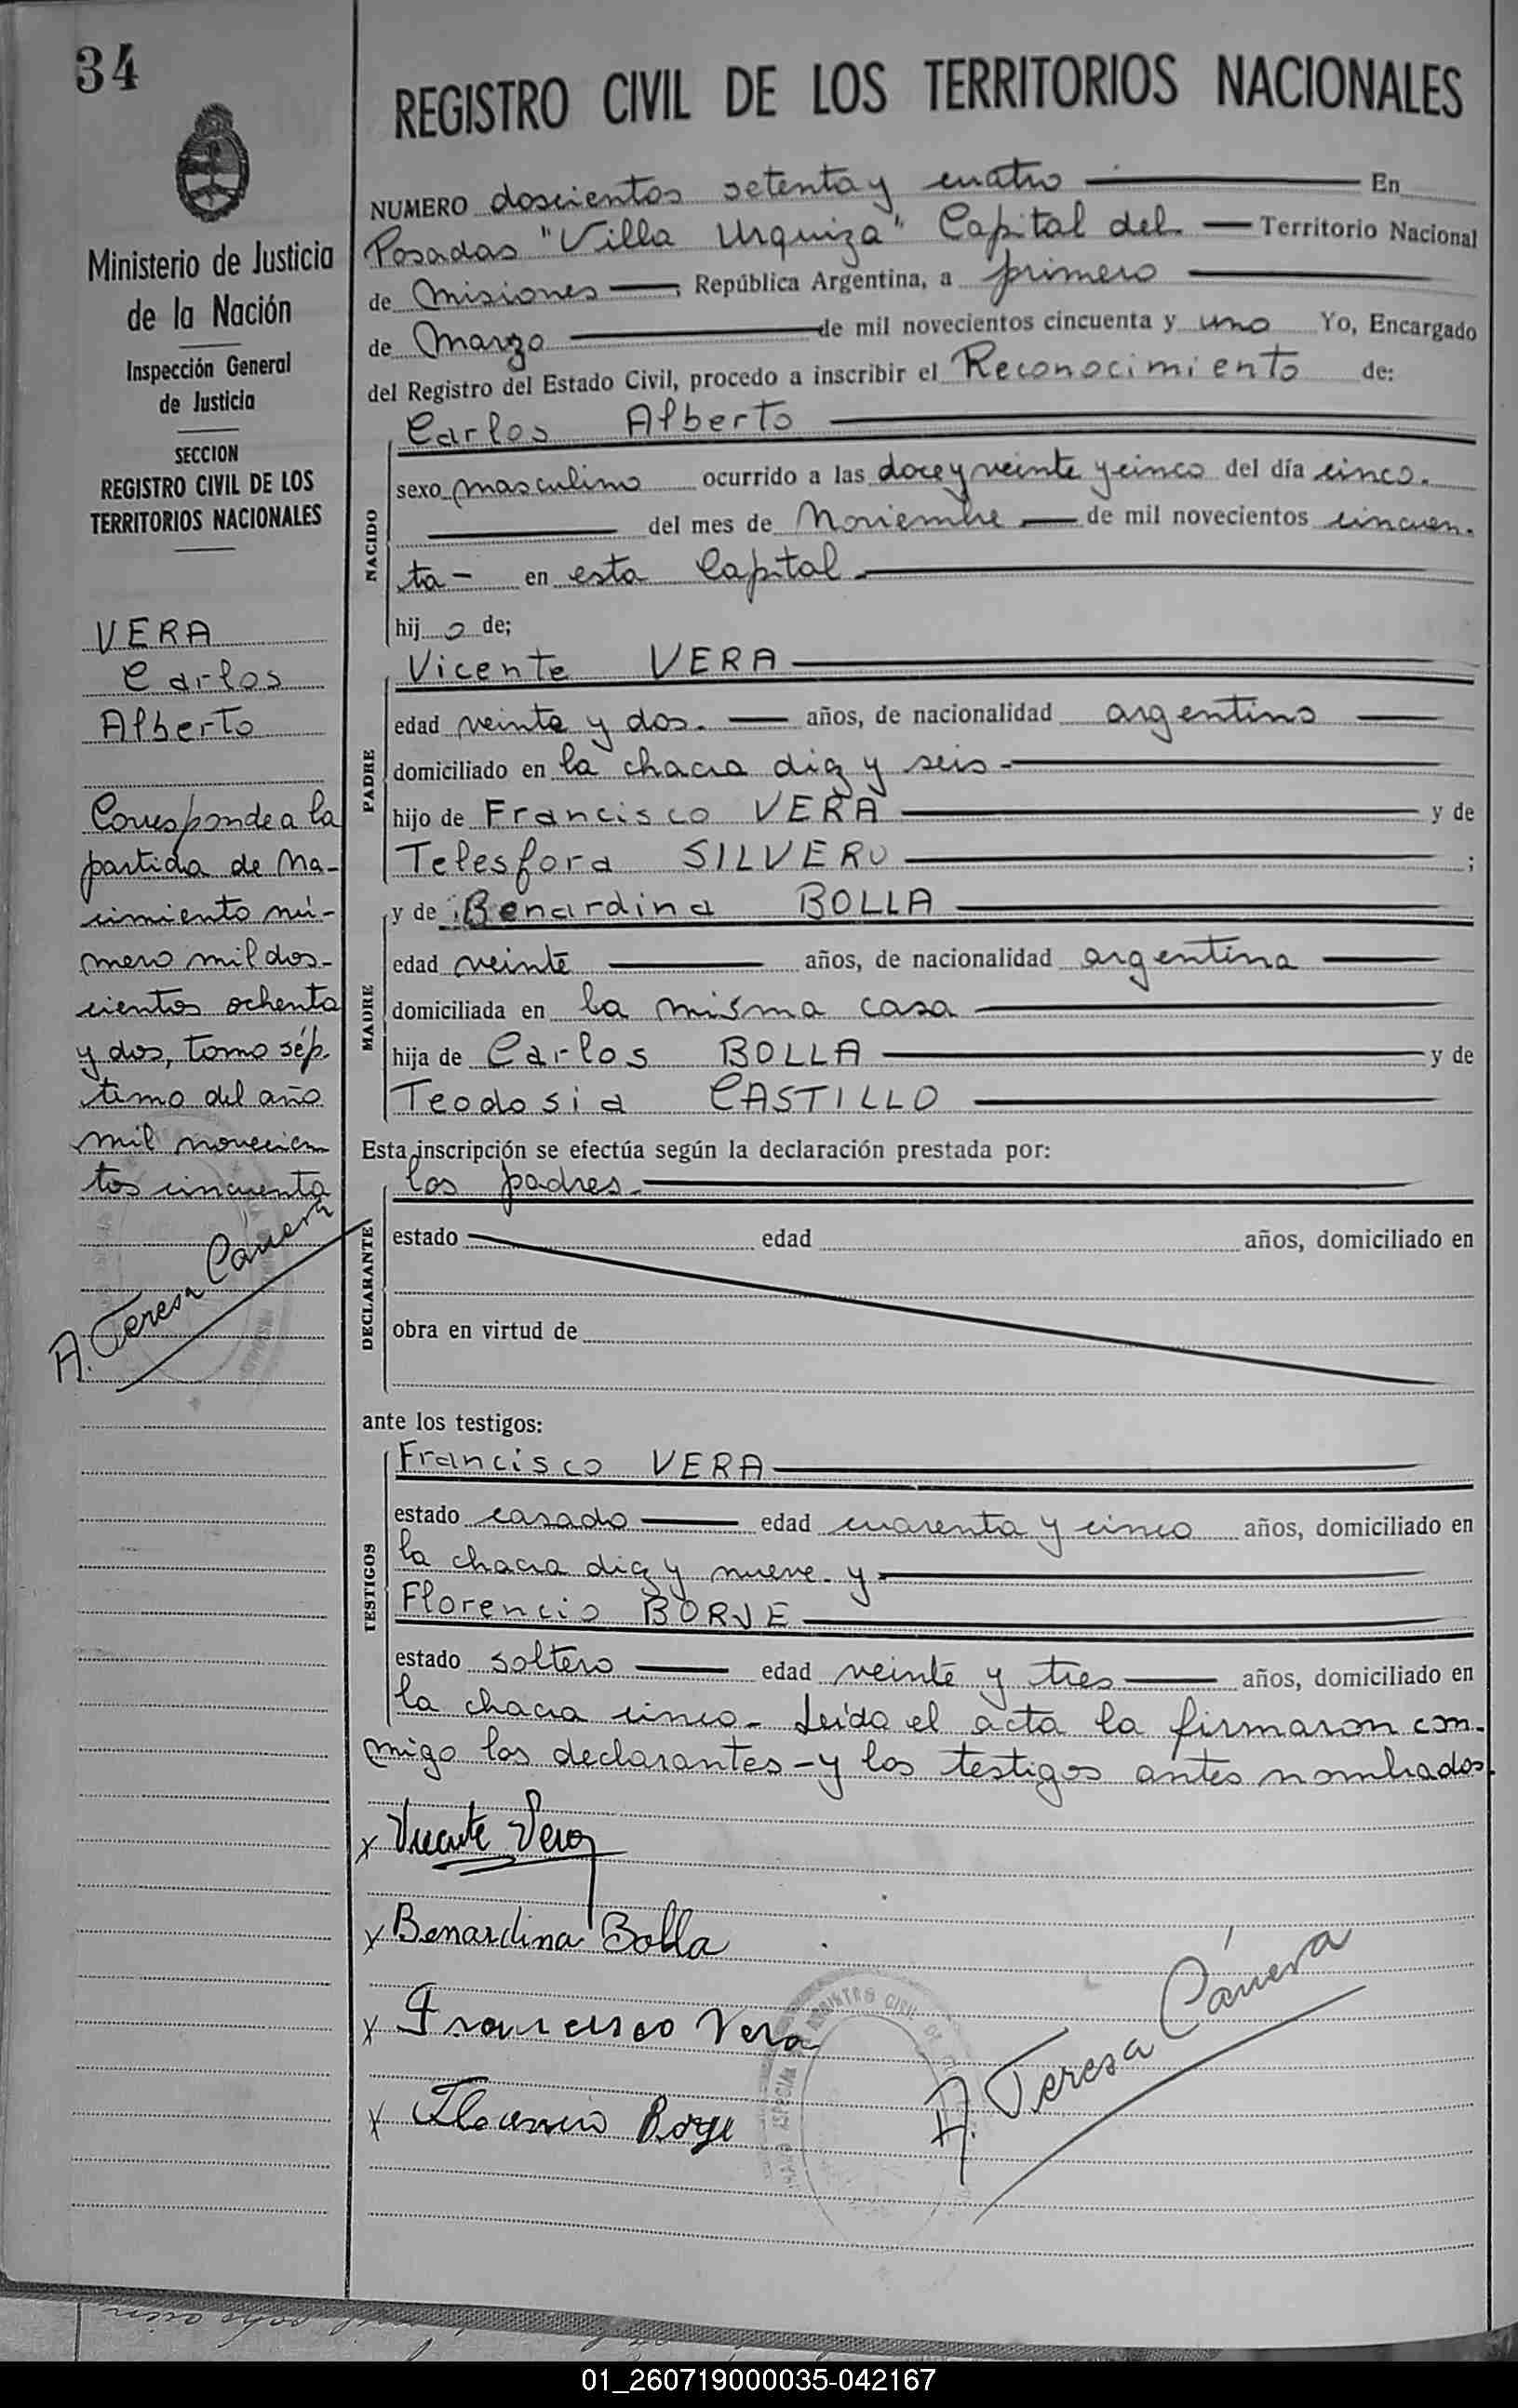 34
Ministerio de Justicia
de la Nación
Inspección General
de Justicia
SECCION
REGISTRO CIVIL DE LOS
TERRITORIOS NACIONALES
VERA
Carlos
Alberto
Corresponde a la
partida de Na-
cimiento nú-
mero mil dos-
cientos ochenta
y dos, tomo sép-
timo del año
mil novecien
tos cincuenta
A. Teresa Carrera
REGISTRO CIVIL DE LOS TERRITORIOS NACIONALES
NUMERO doscientos setenta y cuatro En
Posadas "Villa Urquiza" Capital del Territorio Nacional
de Misiones, República Argentina, a primero
de Marzo de mil novecientos cincuenta y uno Yo, Encargado
del Registro del Estado Civil, procedo a inscribir el Reconocimiento de:
NACIDO
Carlos Alberto
sexo masculino ocurrido a las doce y veinte y cinco del día cinco.
del mes de Noviembre de mil novecientos cincuen-
ta- en esta Capital.
hijo de;
PADRE
Vicente VERA
edad veinte y dos. años, de nacionalidad argentino
domiciliado en la chacra diez y seis
hijo de Francisco VERA y de
Telesfora SILVERO ;
MADRE
y de Benardina BOLLA
edad veinte años, de nacionalidad argentina
domiciliada en la misma casa
hija de Carlos BOLLA y de
Teodosia CASTILLO
Esta inscripción se efectúa según la declaración prestada por:
DECLARANTE
los padres.
estado edad años, domiciliado en
obra en virtud de
ante los testigos:
TESTIGOS
Francisco VERA
estado casado edad cuarenta y cinco años, domiciliado en
la chacra diez y nueve. y
Florencio BORJE
estado soltero edad veinte y tres años, domiciliado en
la chacra cinco- Leída el acta la firmaron con-
migo los declarantes - y los testigos antes nombrados.
x Vicente Vera
x Benardina Bolla
x Francisco Vera
x Florencio Borje
A. Teresa Carrera
01_260719000035-042167